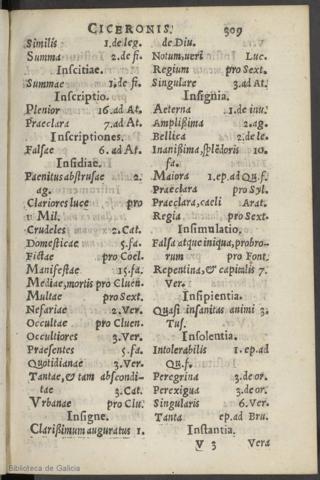 CICERONIS. 309
Similis 1. de leg.
Summa 2. de fi.
Inscitiae.
Summae 1. de fi.
Inscriptio.
Plenior 16. ad At.
Praeclara 7. ad At.
Inscriptiones.
Falsae 6. ad At.
Insidiae.
Paenitus abstrusae 2.
ag.
Clariores luce pro
Mil.
Crudeles 2. Cat.
Domesticae 5. fa.
Fictae pro Coel.
Manifestae 15. fa.
Mediae, mortis pro Cluen.
Multae pro Sext.
Nefariae 2. Ver.
Occultae pro Cluen.
Occultiores 3. Ver.
Praesentes 5. fa.
Quotidianae 3. Ver.
Tantae, & tam abscondi-
tae 3. Cat.
Vrbanae pro Clu.
Insigne.
Clarißimum auguratus 1.
de Diu.
Notum, ueri Luc.
Regium pro Sext.
Singulare 3. ad At.
Insignia.
Aeterna 1. de inu.
Amplißima 2. ag.
Bellica 2. de le.
Inanißima, splēdoris 10.
fa.
Maiora 1. ep. ad Qu. f.
Praeclara pro Syl.
Praeclara, caeli Arat.
Regia pro Sext.
Insimulatio.
Falsa atque iniqua, probro-
rum pro Font.
Repentina, & capitalis 7.
Ver.
Insipientia.
Quasi insanitas animi 3.
Tus.
Insolentia.
Intolerabilis 1. ep. ad
Qu. f.
Peregrina 3. de or.
Perexigua 3. de or.
Singularis 6. Ver.
Tanta ep. ad Bru.
Instantia.
V 3 Vera
Biblioteca de Galicia